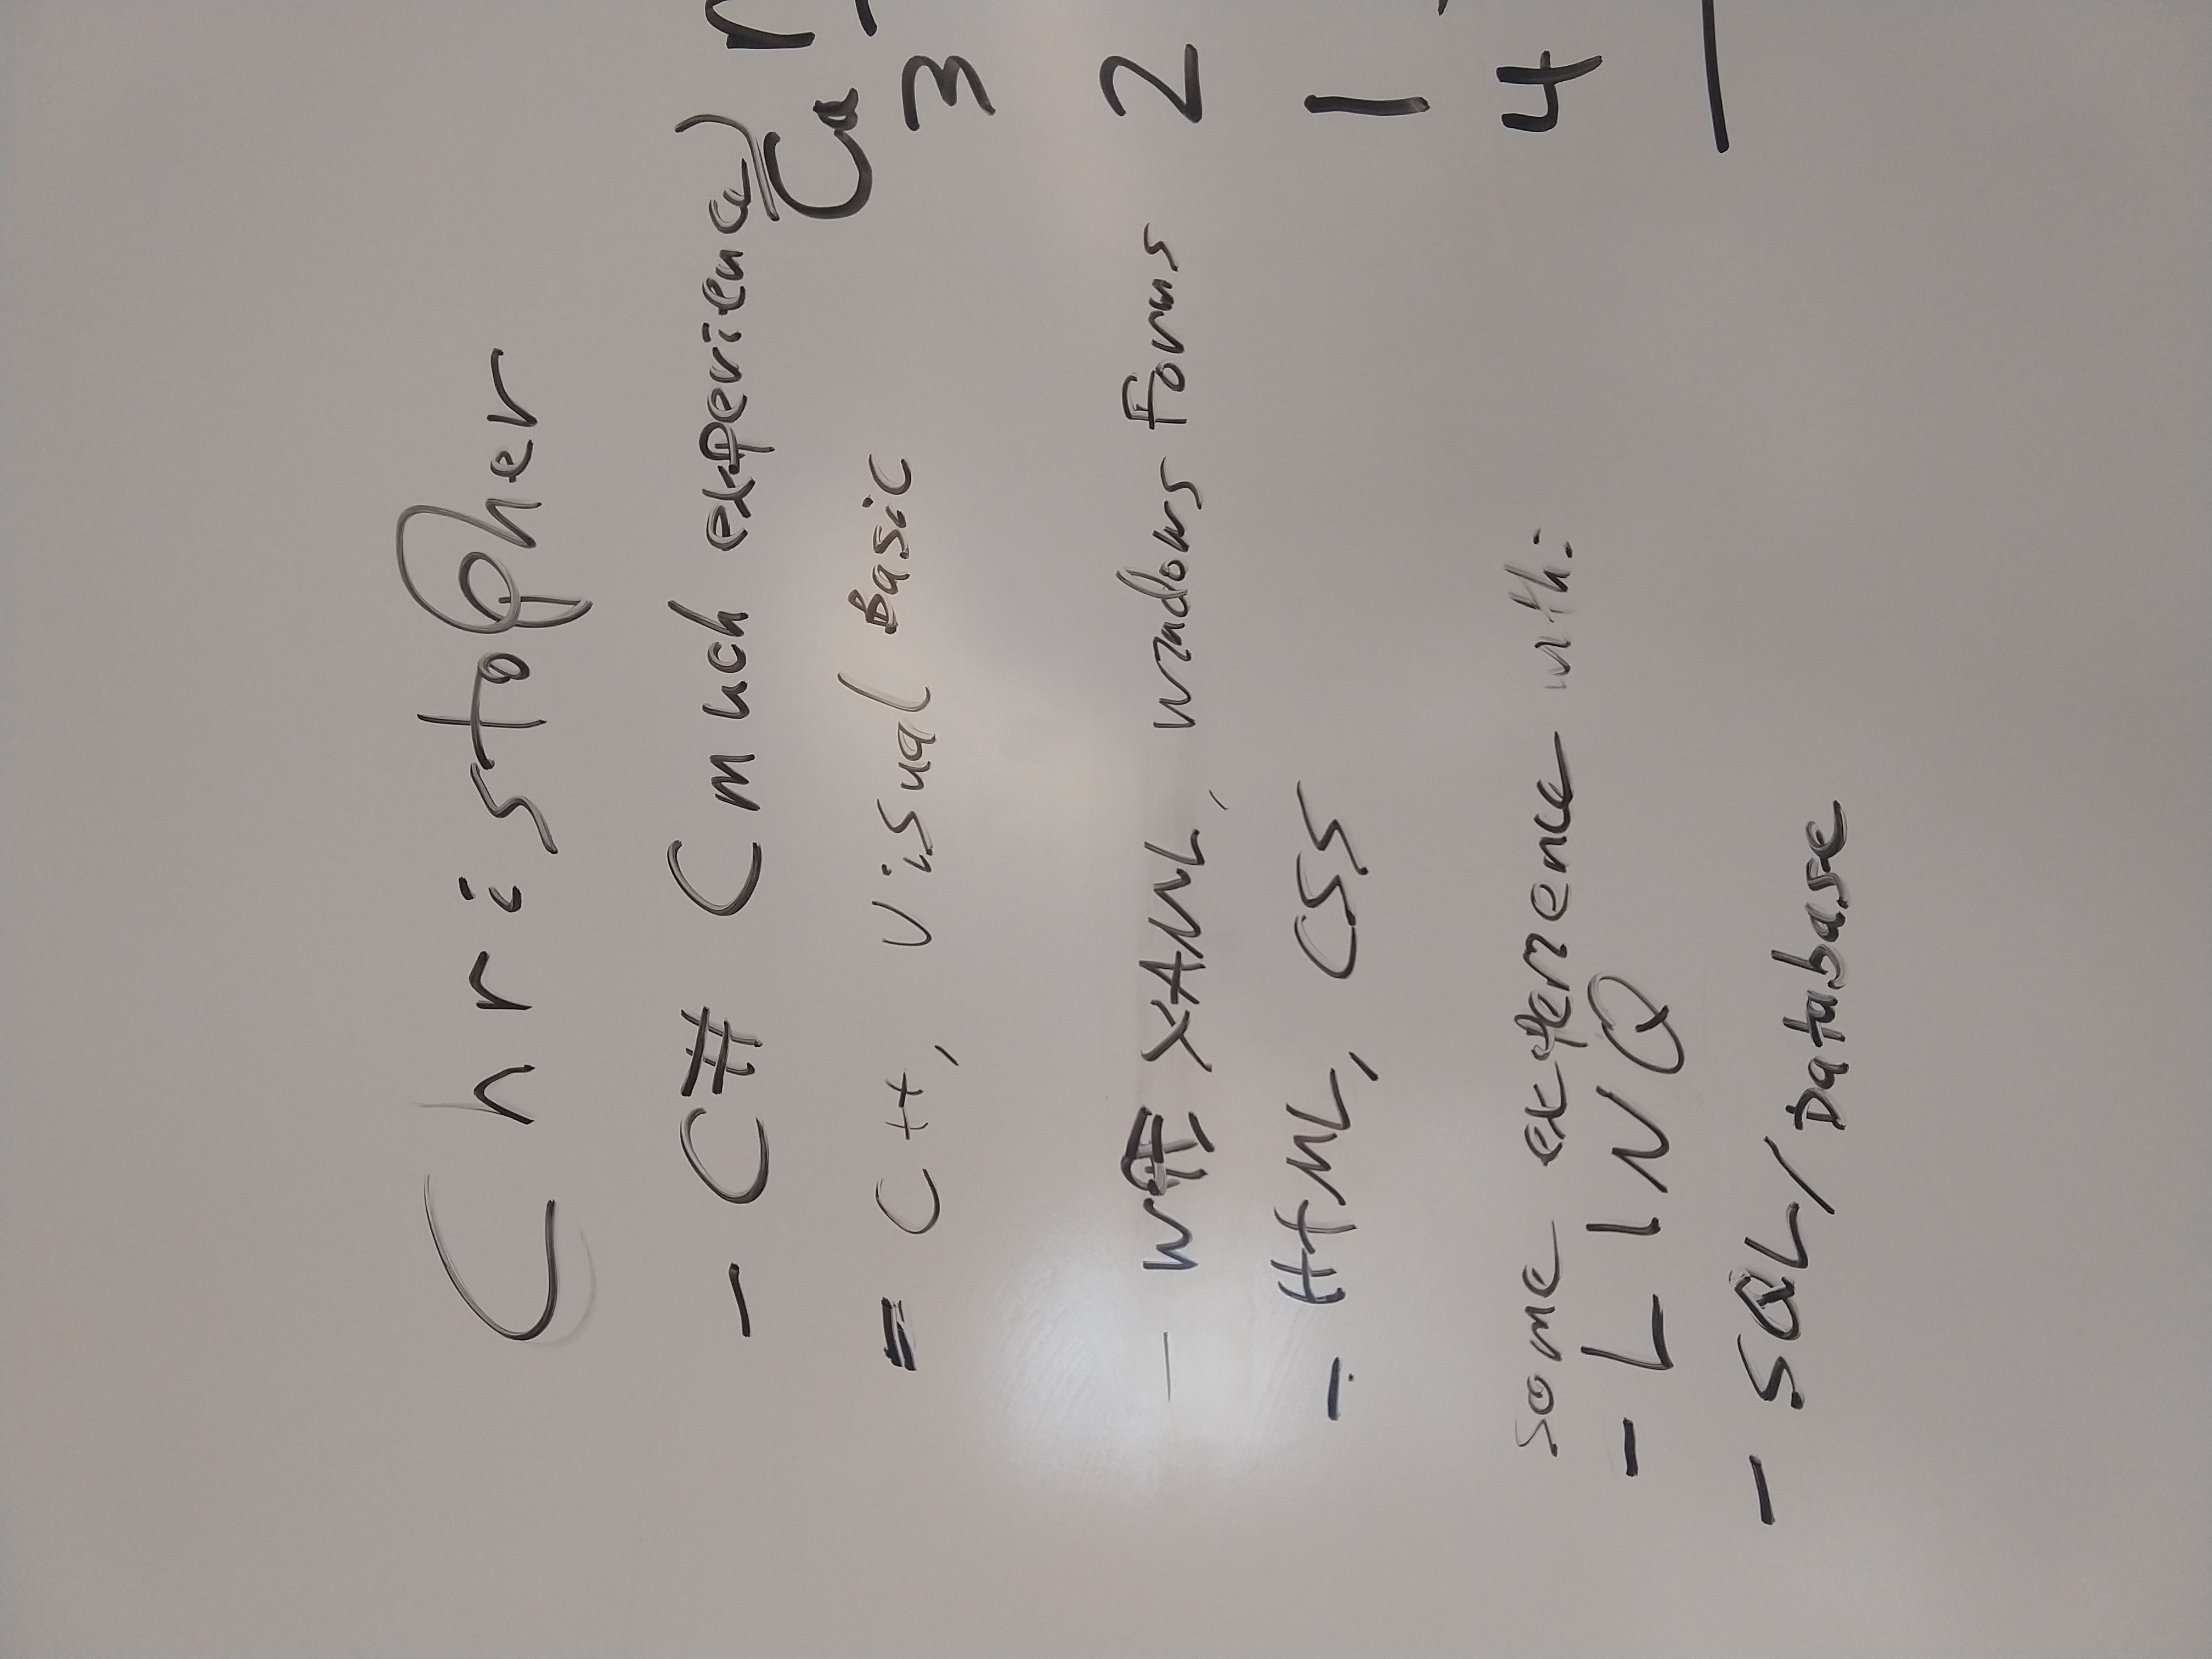 Christopher
- C# (much experience)
Ca
= C++, Visual Basic
3
- XAML, Windows Forms
2
- HTML, CSS
1
some experience with:
4
- LINQ
- SQL/Database